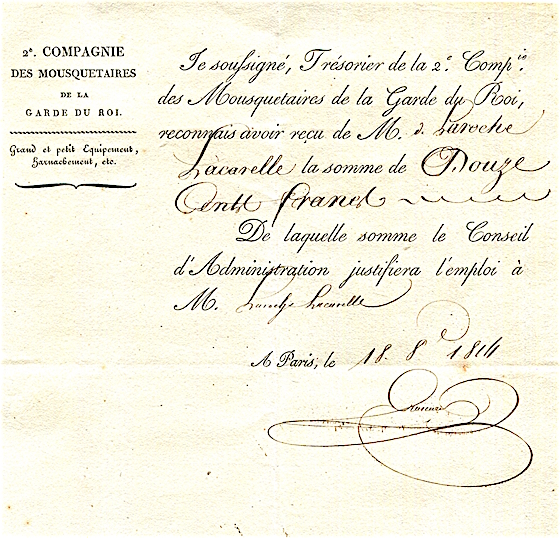 2e. COMPAGNIE
DES MOUSQUETAIRES
DE LA
GARDE DU ROI.
Grand et petit Equipement,
Harnachement, etc.
Je soussigné, Trésorier de la 2e. Compie.
des Mousquetaires de la Garde du Roi,
reconnais avoir reçu de M. d. Laroche
Lacarelle la somme de Douze
Cents francs
De laquelle somme le Conseil
d'Administration justifiera l'emploi à
M. Laroche Lacarelle
A Paris, le 18. 8e 1814